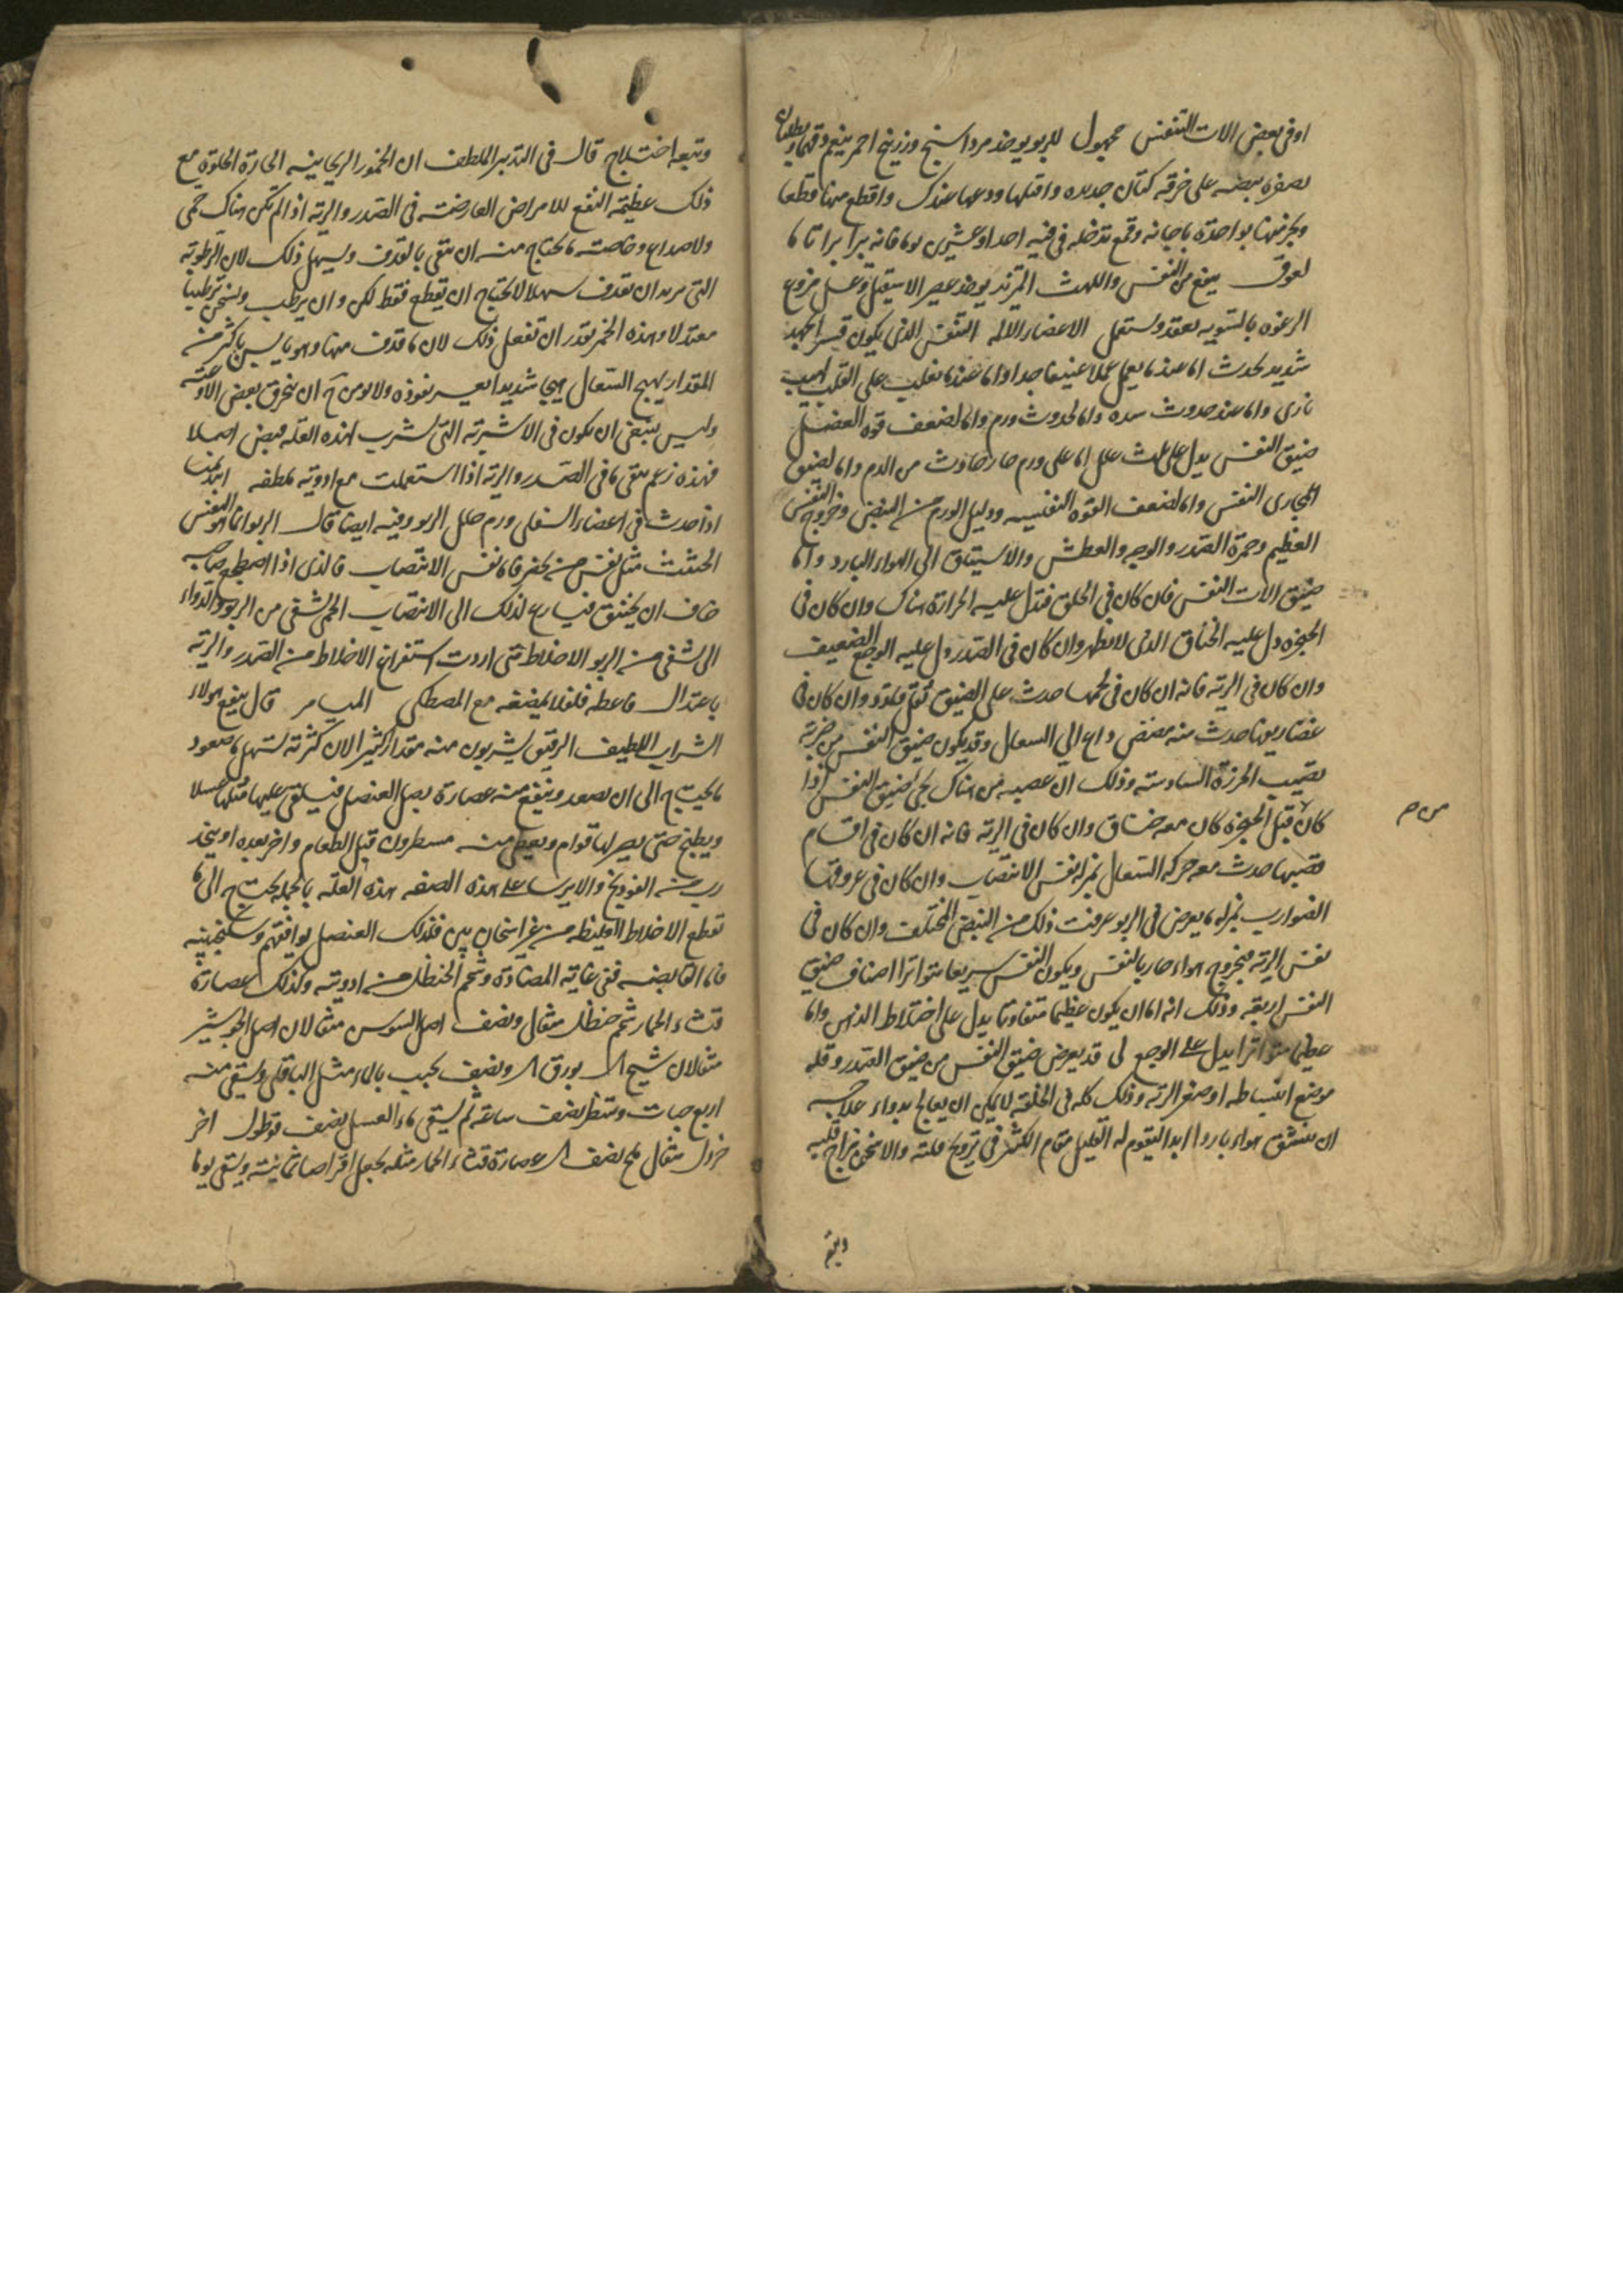 او في بعض الات التنفس مجهول للربو يوخذ مرداسنج وزرنيخ احمر ينعم دقهما و يطليان
بصفرة بيضه على خرقه كتان جديده وافتلها ودعها عندك واقطع منها قطعا
وبخر منها بواحدة باجانه وقمع تدخله في فيه احدا وعشرين يوما فانه يبرا برا تاما
لعوق ينفع من النفس واللهث يوخذ عصير الاسقيل وعسل منزوع
الرغوه بالسويه يعقد ويستعمل الاعضاء الالمه التنفس الذي يكون قسرا بجهد
شديد يحدث اما عندما يعمل عملا عنيفا جدا واما عندما يغلب على القلب لهيب
ناري واما عند حدوث سده واما لحدوث ورم واما لضعف قوه العضل
ضيق النفس يدل على ثلث علل اما على ورم حار حادث من الدم واما لضيق
مجاري النفس واما لضعف القوه النفسيه ودليل الورم من النبض وخروج النفس
العظيم وحمرة الصدر والوجه والعطش والاستياق الى الهواء البارد واما
ضيق الات النفس فان كان في الحلق فتدل عليه الحرارة هناك وان كان في
الحنجره دل عليه الخناق الذي لا يظهر وان كان في الصدر دل عليه الوجع الضعيف
وان كان في الرئه فانه ان كان في لحمها حدث على الضيق ثقل وتمدد وان كان في
غضاريفها حدث منه مضض داع الى السعال وقد يكون ضيق النفس من ضربة
تصيب الخرزة السادسة وذلك ان عصبه من هناك يجي لضيق النفس اذا
كان قبل الحنجره كان معه خناق وان كان في الرئه فانه ان كان في اقسام
قصبتها حدث معه حركه السعال بمنزله نفس الانتصاب وان كان في عروقها
الضوارب بمنزله ما يعرض في الربو عرفت ذلك من النبض المختلف وان كان في
نفس الرئه فبخروج هواء حار بالنفس ويكون النفس سريعا متواترا اصناف ضيق
النفس اربعه وذلك انه اما ان يكون عظيما متفاوتا يدل على اختلاط الذهن واما
عظيما متواترا يدل على الوجع لى قد يعرض ضيق النفس من ضيق الصدر وقله
موضع انبساطه او صغر الرئه وذلك كله في الخلقه لا يمكن ان يعالج بدواء علاجه
ان يتنشق هواء باردا ابدا ليقوم له القليل مقام الكثير في ترويح قلبه والا سخن مزاج قلبه
وتبعه
وتبعه اختلاج قال في التدبير الملطف ان الخمور الريحانيه الحارة الحلوة مع
ذلك عظيمة النفع للامراض العارضه في الصدر والرئه اذا لم تكن هناك حمى
ولا صداع وخاصه ما يحتاج منه ان ينقى بالقذف ويسهل ذلك لان الرطوبه
التي يريد ان تقذف سهلا لا تحتاج ان تقطع فقط لكن وان يرطب ويسخن ترطيبا
معتدلا وهذه الخمر تقدر ان تفعل ذلك لان ما قذف منها وهو يابس باكثر من
المقدار يهيج السعال هيجا شديدا يعسر نفوذه ولا يومن ان ينخرق بعض الاوعيه
وليس ينبغي ان يكون في الاشربه التي تشرب لهذه العله قبض اصلا
فهذه زعم تنقي ما في الصدر والرئه اذا استعملت مع ادويه ملطفه ابيذيميا
اذا حدث في اعضاء السفلى ورم حلل الربو وفيه ايضا قال الربو انما هو النفس
الحثيث مثل نفس من يحضر فاما نفس الانتصاب فالذي اذا اضطجع صاحبه
خاف ان يختنق فيسارع لذلك الى الانتصاب الحمى تشفي من الربو والدواء
الذي يشفي من الربو الاخلاط متى اردت استفراغ الاخلاط من الصدر والرئه
باعتدال فاعطه فلفلا يمضغه مع المصطكى الميامر قال ينفع هولاء
الشراب اللطيف الرقيق يشربون منه مقدار كثير الان كثرته تسهل صعود
ما يحتاج الى ان يصعد وينفع منه عصارة بصل العنصل فيلقى عليها مثلها عسلا
ويطبخ حتى يصير لها قوام ويعطى منه مسطرون قبل الطعام واخر بعده او يتخذ
رب من الفودنج والايرسا على هذه الصفه هذه العله بالجمله تحتاج الى ما
تقطع الاخلاط الغليظه من غير اسخان بين فلذلك العنصل يوافقهم وسكنجبينه
فاما القابضه ففي غايه المضادة وشحم الحنظل من ادويته وكذلك عصارة
قثاء الحمار شحم حنظل مثقال ونصف اصل السوس مثقالان اصل الجوشير
مثقالان شيح بورق ونصف يحبب بالماء مثل الباقلى ويسقى منه
اربع حبات وتنتظر نصف ساعة ثم يسقى ماء العسل نصف قوطول اخر
خردل مثقال ملح نصف عصارة قثاء الحمار مثله يجعل اقراصا ثمانيه ويسقى يوما